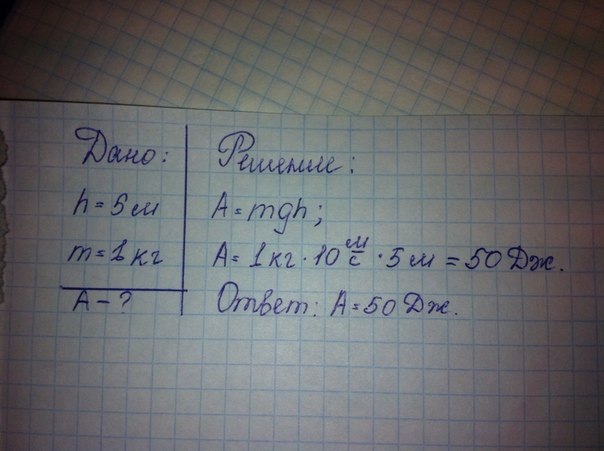 Дано:
h = 5 м
m = 1 кг
A - ?
Решение:
A = mgh;
A = 1 кг · 10 м/с · 5 м = 50 Дж.
Ответ: A = 50 Дж.